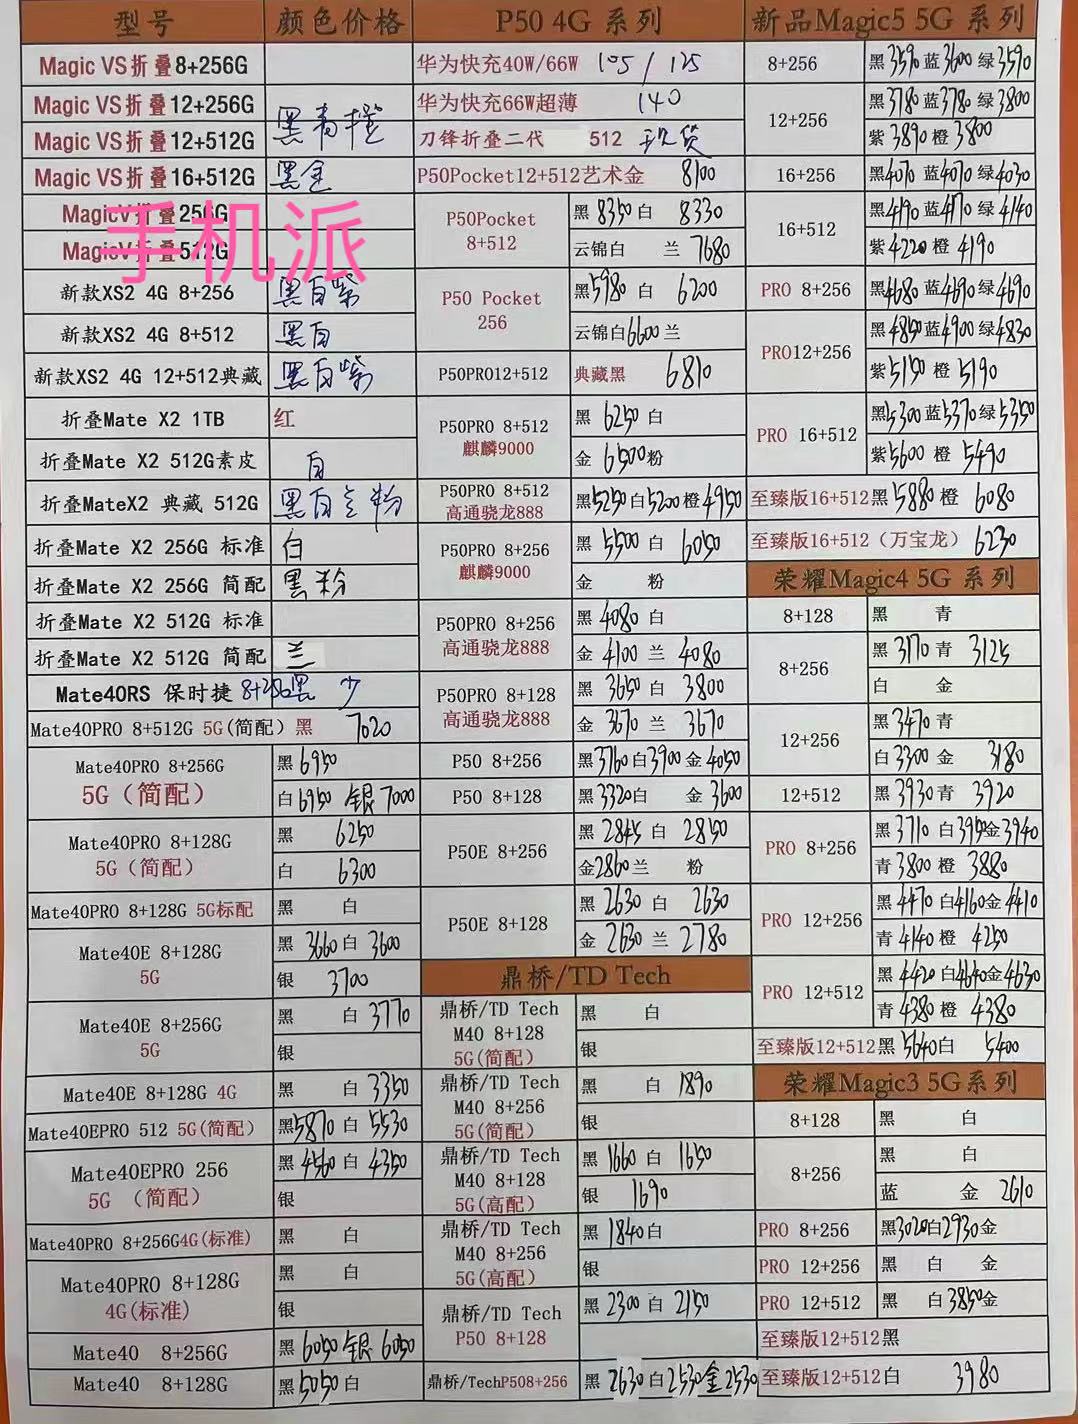 型号 颜色价格 P50 4G 系列 新品Magic5 5G 系列
Magic VS折叠8+256G 华为快充40W/66W 105/125 8+256 黑3590 蓝3600 绿3590
Magic VS折叠12+256G 黑青橙 华为快充66W超薄 140 12+256 黑3780 蓝3780 绿3800
Magic VS折叠12+512G 刀锋折叠二代 512 现货 紫3890 橙3800
Magic VS折叠16+512G 黑金 P50Pocket12+512艺术金 8100 16+256 黑4070 蓝4070 绿4030
MagicV折叠256G P50Pocket 8+512 黑8350 白 8330 16+512 黑4190 蓝4170 绿4140
手机派
MagicV折叠512G 云锦白 兰 7680 紫4220 橙 4190
新款XS2 4G 8+256 黑白紫 P50 Pocket 256 黑5980 白 6200 PRO 8+256 黑4680 蓝4690 绿4690
新款XS2 4G 8+512 黑白 云锦白6600 兰 PRO12+256 黑4850 蓝4900 绿4830
新款XS2 4G 12+512典藏 黑白紫 P50PRO12+512 典藏黑 6810 紫5150 橙 5190
折叠Mate X2 1TB 红 P50PRO 8+512 麒麟9000 黑 6250 白 PRO 16+512 黑5300 蓝5370 绿5350
折叠Mate X2 512G素皮 白 金 6500 粉 紫5600 橙 5490
折叠MateX2 典藏 512G 黑白 粉 P50PRO 8+512 高通骁龙888 黑5250 白5200 橙4950 至臻版16+512 黑5880 橙 6080
折叠Mate X2 256G 标准 白 P50PRO 8+256 麒麟9000 黑 5500 白 6050 至臻版16+512（万宝龙） 6230
折叠Mate X2 256G 简配 黑粉 金 粉 荣耀Magic4 5G 系列
折叠Mate X2 512G 标准 P50PRO 8+256 高通骁龙888 黑 4080 白 8+128 黑 青
折叠Mate X2 512G 简配 兰 金 4100 兰 4080 8+256 黑 3170 青 3125
Mate40RS 保时捷 8+256 黑 少 P50PRO 8+128 高通骁龙888 黑 3650 白 3800 白 金
Mate40PRO 8+512G 5G(简配）黑 7020 金 3670 兰 3670 12+256 黑 3470 青
Mate40PRO 8+256G 5G（简配） 黑 6950 P50 8+256 黑3760 白3900 金 4050 白3300 金 3180
白6950 银7000 P50 8+128 黑3320 白 金 3600 12+512 黑 3930 青 3920
Mate40PRO 8+128G 5G（简配） 黑 6250 P50E 8+256 黑 2845 白 2850 PRO 8+256 黑 3710 白3950 金3940
白 6300 金2860 兰 粉 青 3800 橙 3880
Mate40PRO 8+128G 5G标配 黑 白 P50E 8+128 黑 2630 白 2630 PRO 12+256 黑 4470 白4160 金 4410
Mate40E 8+128G 5G 黑 3660 白 3600 金 2630 兰 2780 青 4140 橙 4250
银 3700 鼎桥/TD Tech PRO 12+512 黑 4420 白4640 金4630
Mate40E 8+256G 5G 黑 白 3770 鼎桥/TD Tech M40 8+128 5G(简配） 黑 白 青 4380 橙 4380
银 银 至臻版12+512 黑 5640 白 5400
Mate40E 8+128G 4G 黑 白 3350 鼎桥/TD Tech M40 8+256 5G(简配） 黑 白 1890 荣耀Magic3 5G系列
Mate40EPRO 512 5G(简配） 黑5870 白 5530 银 8+128 黑 白
Mate40EPRO 256 5G （简配） 黑 4560 白 4350 鼎桥/TD Tech M40 8+128 5G(高配） 黑 1660 白 1650 8+256 黑 白
银 银 1690 蓝 金 2610
Mate40PRO 8+256G4G(标准) 黑 白 鼎桥/TD Tech M40 8+256 5G(高配） 黑 1840 白 PRO 8+256 黑3020 白2930 金
Mate40PRO 8+128G 4G(标准) 黑 白 银 PRO 12+256 黑 白 金
银 鼎桥/TD Tech P50 8+128 黑 2300 白 2150 PRO 12+512 黑 白3850 金
Mate40 8+256G 黑 6050 银 6050 至臻版12+512 黑
Mate40 8+128G 黑5050 白 鼎桥/TechP508+256 黑 2630 白2530 金2530 至臻版12+512 白 3980